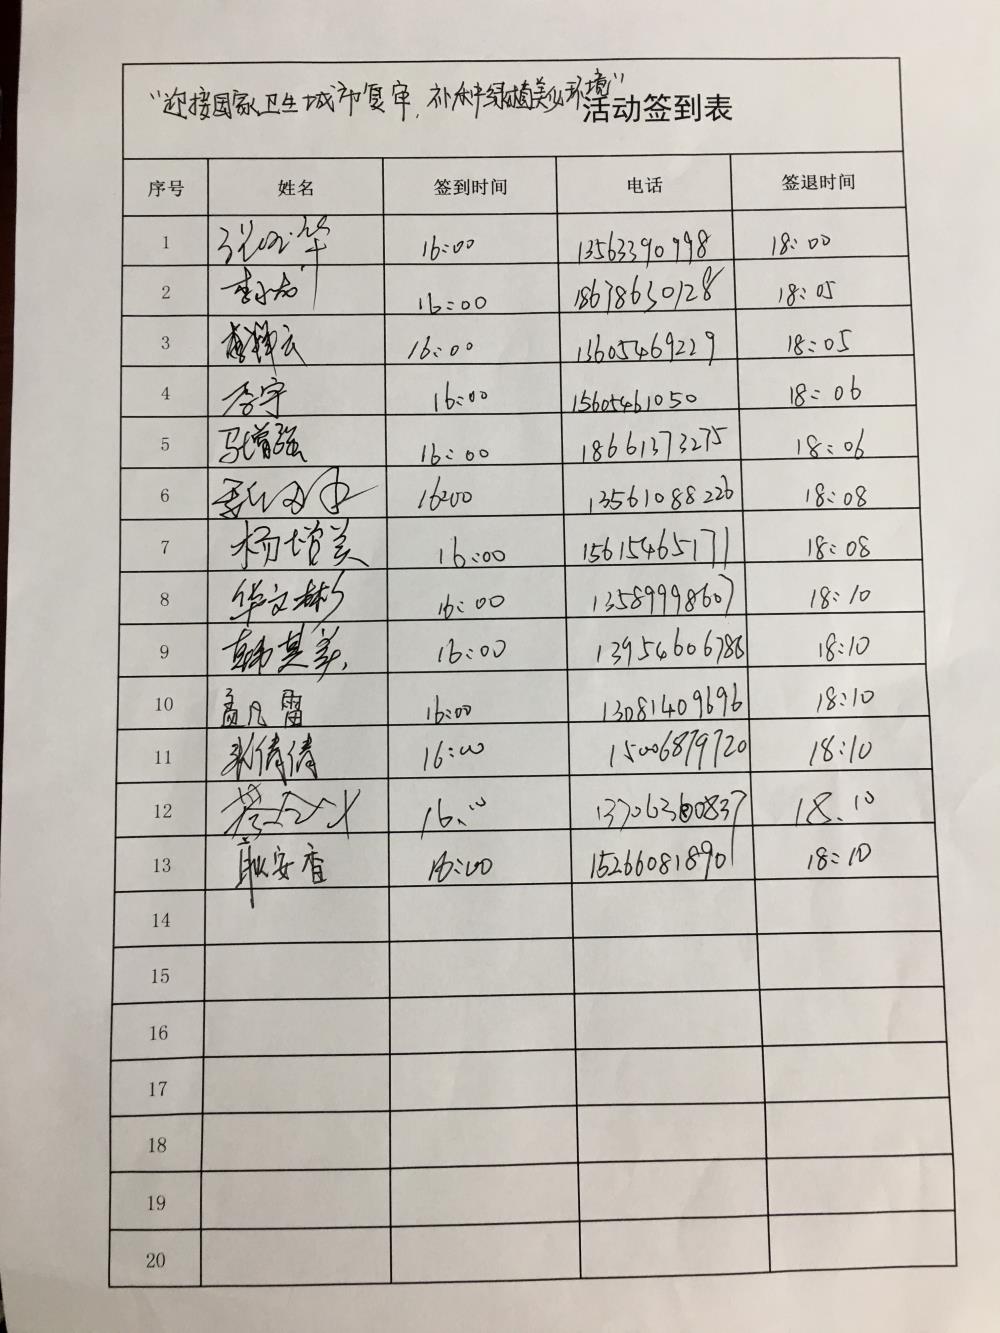 "迎接国家卫生城市复审，补种绿植美化环境"活动签到表
序号 姓名 签到时间 电话 签退时间
1 16:00 13563390998 18:00
2 李小龙 16:00 18678630128 18:05
3 16:00 13605469229 18:05
4 李宇 16:00 15605461050 18:06
5 马增强 16:00 18661373275 18:06
6 16:00 13561088226 18:08
7 杨增美 16:00 15615465171 18:08
8 华文彬 16:00 13589998607 18:10
9 韩其美 16:00 13954606786 18:10
10 孟凡雷 16:00 13081409696 18:10
11 倩倩 16:00 15006879720 18:10
12 16:00 13706360837 18:10
13 耿安香 16:00 15266081890 18:10
14
15
16
17
18
19
20